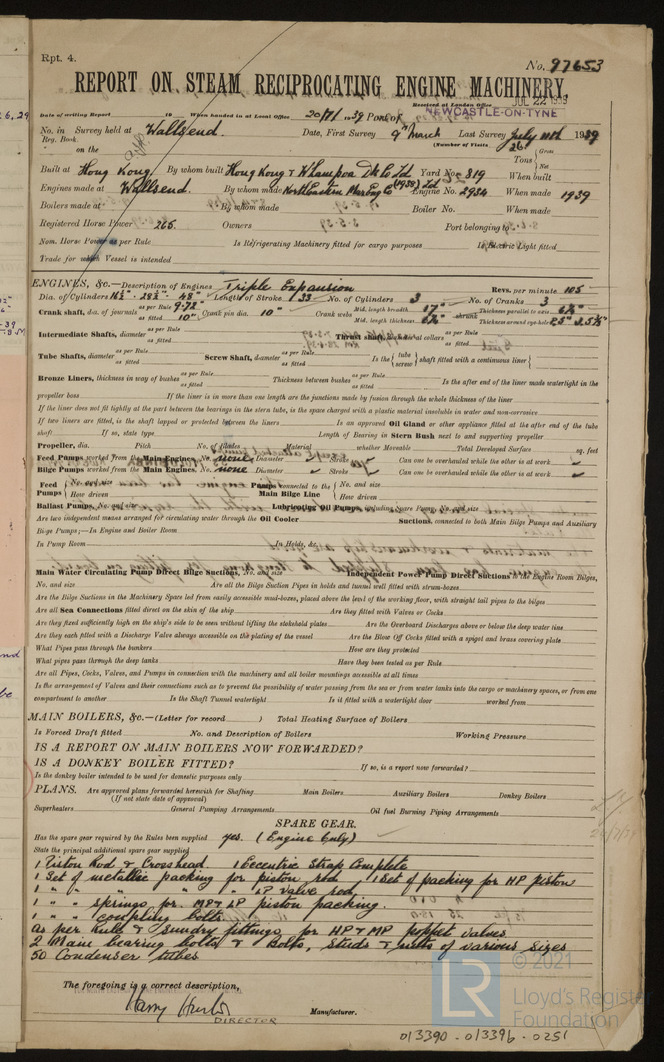 Rpt. 4.
No. 97653
REPORT ON STEAM RECIPROCATING ENGINE MACHINERY.
Received at London Office JUL 22 1939
Date of writing Report 19 When handed in at Local Office 20/7/1939 Port of NEWCASTLE-ON-TYNE
No. in Reg. Book. Survey held at Wallsend. Date, First Survey 9th March Last Survey July 11th 1939
(Number of Visits 26)
on the Tons { Gross Net
Built at Hong Kong By whom built Hong Kong & Whampoa Dk Co Ld Yard No. 819 When built
Engines made at Wallsend. By whom made North Eastern Mar Eng Co (1938) Ltd Engine No. 2934 When made 1939
Boilers made at By whom made Boiler No. When made
Registered Horse Power 266. Owners Port belonging to
Nom. Horse Power as per Rule Is Refrigerating Machinery fitted for cargo purposes Is Electric Light fitted
Trade for which Vessel is intended
ENGINES, &c.—Description of Engines Triple Expansion Revs. per minute 105
Dia. of Cylinders 16½" - 28½" - 48" Length of Stroke 33 No. of Cylinders 3 No. of Cranks 3
Crank shaft, dia. of journals as per Rule 9.72" as fitted 10" Crank pin dia. 10" Crank webs Mid. length breadth 17" Mid. length thickness shrunk Thickness parallel to axis Thickness around eye-hole
Intermediate Shafts, diameter as per Rule as fitted Thrust shaft, diameter at collars as per Rule as fitted
Tube Shafts, diameter as per Rule as fitted Screw Shaft, diameter as per Rule as fitted Is the { tube screw } shaft fitted with a continuous liner {
Bronze Liners, thickness in way of bushes as per Rule as fitted Thickness between bushes as per Rule as fitted Is the after end of the liner made watertight in the
propeller boss If the liner is in more than one length are the junctions made by fusion through the whole thickness of the liner
If the liner does not fit tightly at the part between the bearings in the stern tube, is the space charged with a plastic material insoluble in water and non-corrosive
If two liners are fitted, is the shaft lapped or protected between the liners Is an approved Oil Gland or other appliance fitted at the after end of the tube
shaft If so, state type Length of Bearing in Stern Bush next to and supporting propeller
Propeller, dia. Pitch No. of blades Material whether Moveable Total Developed Surface sq. feet
Feed Pumps worked from the Main Engines, No. none Diameter Stroke Can one be overhauled while the other is at work
Bilge Pumps worked from the Main Engines, No. none Diameter Stroke Can one be overhauled while the other is at work
Feed Pumps { No. and size How driven Pumps connected to the Main Bilge Line { No. and size How driven
Ballast Pumps, No. and size Lubricating Oil Pumps, including Spare Pump, No. and size
Are two independent means arranged for circulating water through the Oil Cooler Suctions, connected to both Main Bilge Pumps and Auxiliary
Bilge Pumps;—In Engine and Boiler Room
In Pump Room In Holds, &c.
Main Water Circulating Pump Direct Bilge Suctions, No. and size Independent Power Pump Direct Suctions to the Engine Room Bilges,
No. and size Are all the Bilge Suction Pipes in holds and tunnel well fitted with strum-boxes
Are the Bilge Suctions in the Machinery Space led from easily accessible mud-boxes, placed above the level of the working floor, with straight tail pipes to the bilges
Are all Sea Connections fitted direct on the skin of the ship Are they fitted with Valves or Cocks
Are they fixed sufficiently high on the ship's side to be seen without lifting the stokehold plates Are the Overboard Discharges above or below the deep water line
Are they each fitted with a Discharge Valve always accessible on the plating of the vessel Are the Blow Off Cocks fitted with a spigot and brass covering plate
What Pipes pass through the bunkers How are they protected
What pipes pass through the deep tanks Have they been tested as per Rule
Are all Pipes, Cocks, Valves, and Pumps in connection with the machinery and all boiler mountings accessible at all times
Is the arrangement of Valves and their connections such as to prevent the possibility of water passing from the sea or from water tanks into the cargo or machinery spaces, or from one
compartment to another Is the Shaft Tunnel watertight Is it fitted with a watertight door worked from
MAIN BOILERS, &c.—(Letter for record ) Total Heating Surface of Boilers
Is Forced Draft fitted No. and Description of Boilers Working Pressure
IS A REPORT ON MAIN BOILERS NOW FORWARDED?
IS A DONKEY BOILER FITTED? If so, is a report now forwarded?
Is the donkey boiler intended to be used for domestic purposes only
PLANS. Are approved plans forwarded herewith for Shafting Main Boilers Auxiliary Boilers Donkey Boilers
(If not state date of approval)
Superheaters General Pumping Arrangements Oil fuel Burning Piping Arrangements
SPARE GEAR.
Has the spare gear required by the Rules been supplied yes. (Engine Only)
State the principal additional spare gear supplied
1 Piston Rod & Crosshead 1 Eccentric Strap Complete
1 Set of metallic packing for piston rod 1 Set of packing for HP piston
1 " " " " " LP Valve rod
1 " " springs for MP & LP piston packing.
1 " " coupling bolts
as per Rule & sundry fittings for HP & MP poppet valves
2 Main bearing bolts & Bolts, Studs & nuts of various sizes
50 Condenser tubes
The foregoing is a correct description,
DIRECTOR Manufacturer.
© 2021
LR Lloyd's Register
Foundation
013390-013396-0251